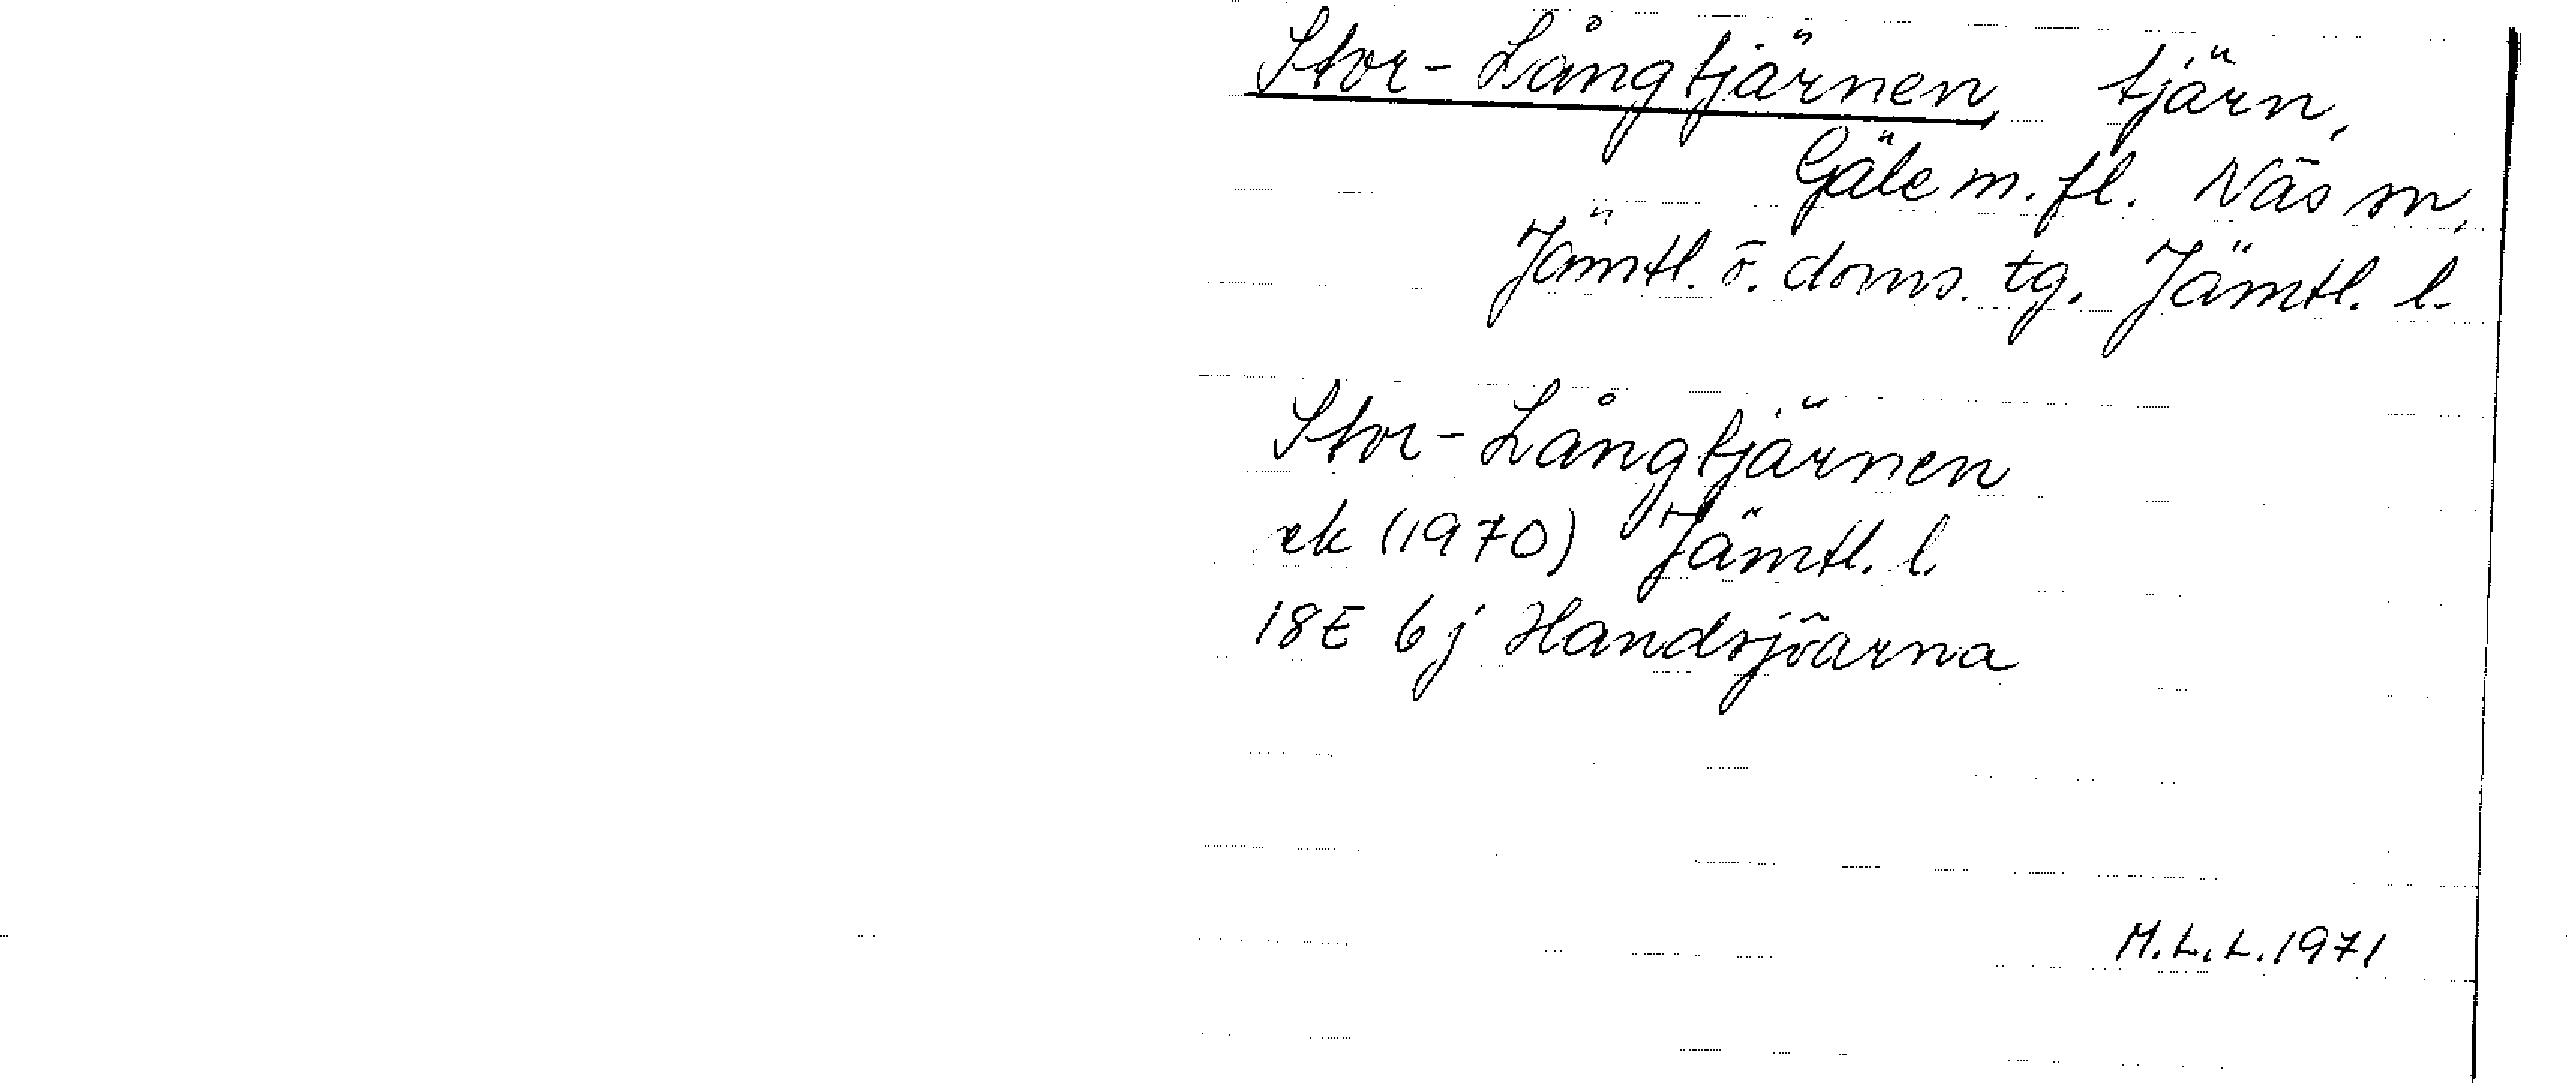 Stor-Långtjärnen tjärn,
Gäle m.fl. Näs sn,
Jämtl. ö. doms. tg. Jämtl. l.
Stor-Långtjärnen
ek (1970) Jämtl. l.
18E 6j Handsjöarna
M.L.L. 1971